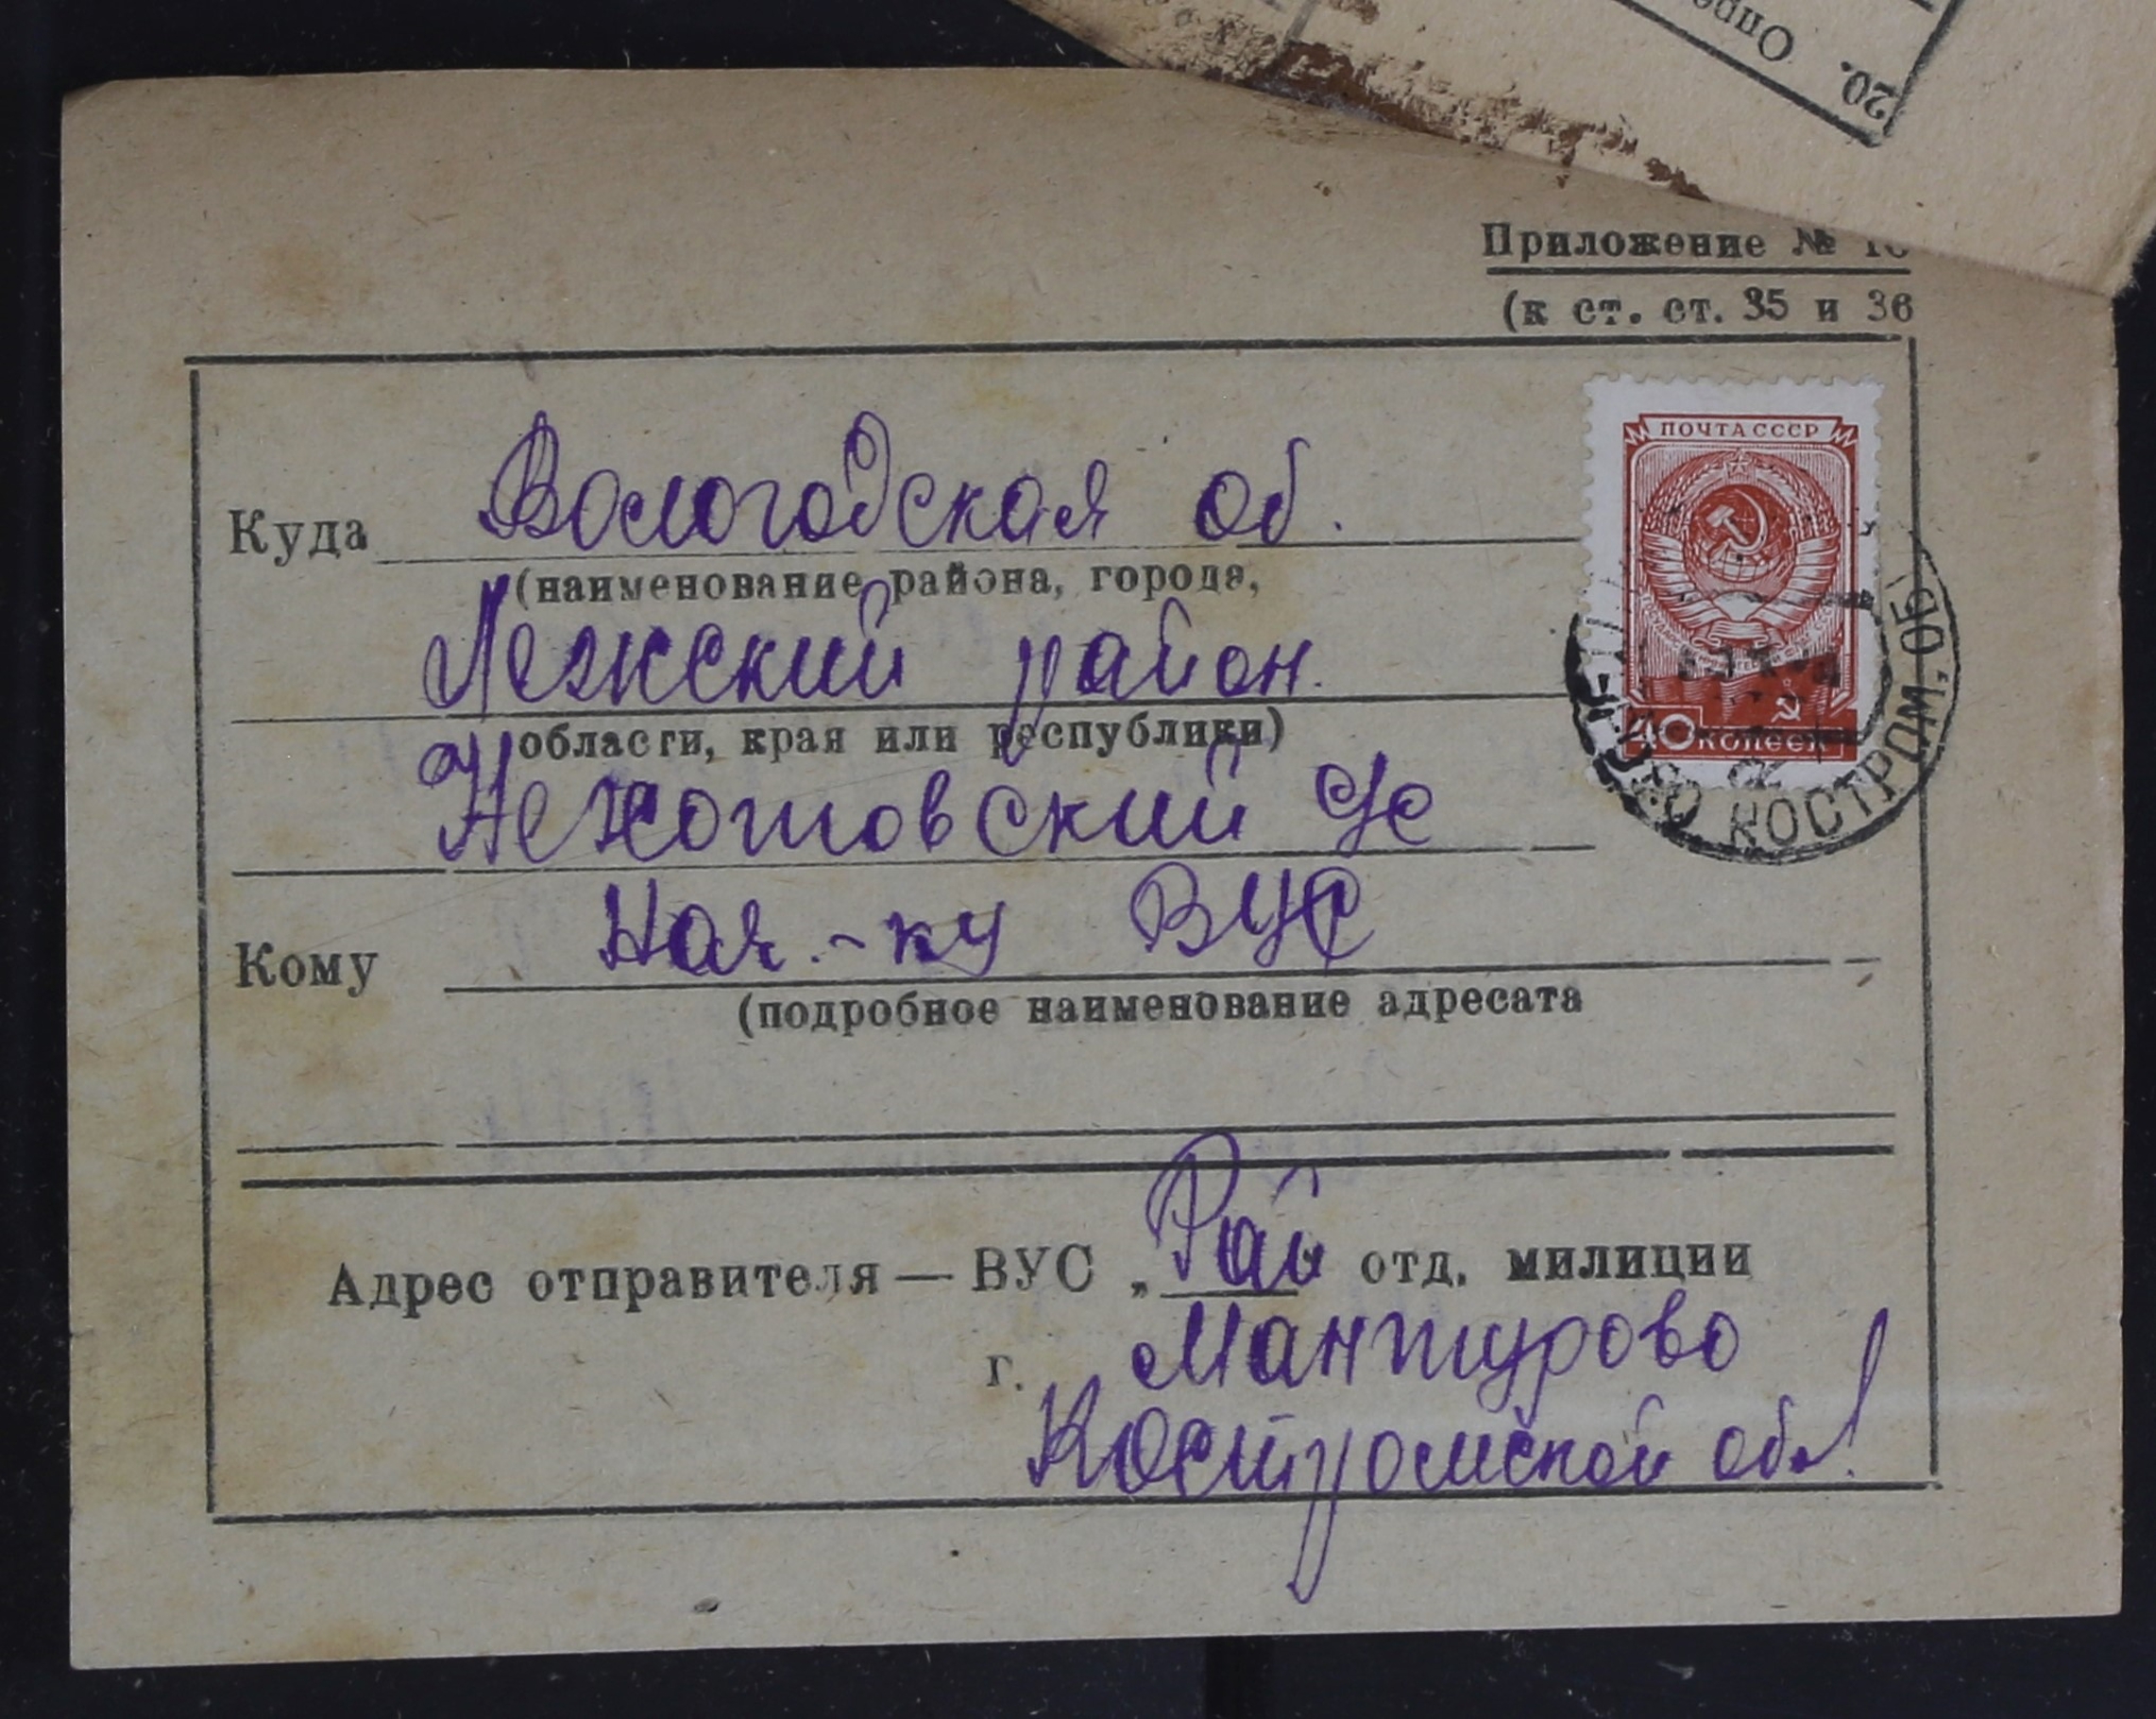 20. Опре
Приложение №
(к ст. ст. 35 и 36
ПОЧТА СССР
40 копеек
КОСТРОМ. ОБ
Куда Вологодская об.
(наименование района, города,
Лежский район.
области, края или республики)
Нехотовский с/с
Кому Нач.-ку ВУС
(подробное наименование адресата
Адрес отправителя — ВУС „Рай отд. милиции
г. Мантурово
Костромской обл.